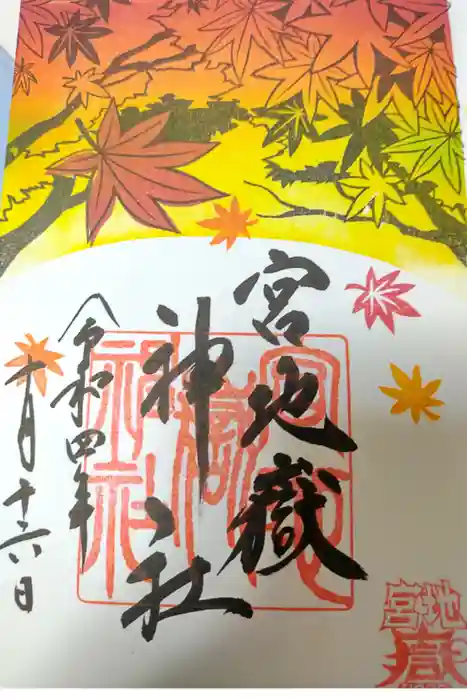 宮地嶽
神社
令和四年
十月十六日
宮地嶽神社
宮地
嶽